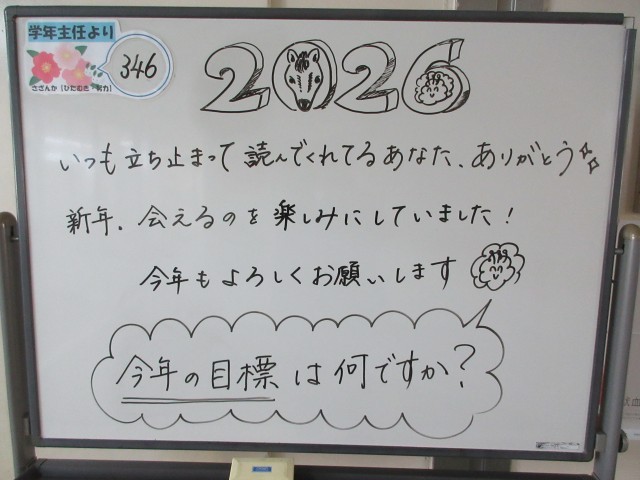 学年主任より
346
さざんか「ひたむき 努力」
2026
いつも立ち止まって読んでくれてるあなた、ありがとう
新年、会えるのを楽しみにしていました!
今年もよろしくお願いします
今年の目標は何ですか?